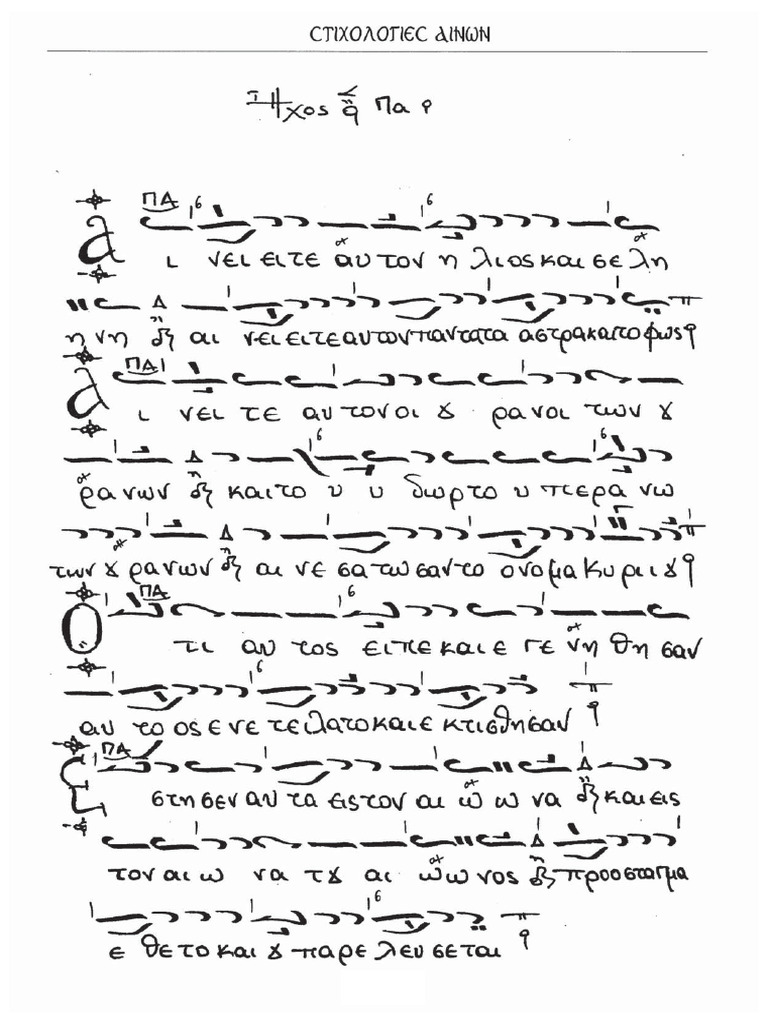 ϹΤΙΧΟΛΟΓΙΕϹ ΑΙΝΩΝ
Ἦχος Πα
ΠΑ 6 6
Α ι νει ειτε αυτον η λιος και σε λη
η νη Δ αι νει ειτε αυτον παντα τα αστρα και το φως
ΠΑ
Α ι νει τε αυ τον οι ȣ ρα νοι των ȣ
6 6
ρα νων και το υ υ δωρ το υ περα νω
των ȣ ρα νων αι νε σα τω σαν το ονομα Κυ ρι ȣ
ΠΑ 6
Ο τι αυ τος ει πε και ε γε νη θη σαν
6
αυ το ος ε νε τει λατο και ε κτισθησαν
ΠΑ
Ε στη σεν αυ τα εις τον αι ω ω να και εις
τον αι ω να τȣ αι ω ω νος προσταγμα
6
ε θε το και ȣ παρε λευ σεται